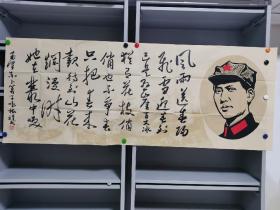 風雨送春歸
飛雪迎春到
已是悬崖百丈冰
犹有花枝俏
俏也不争春
只把春来
報待到山花
爛漫时
她在叢中笑